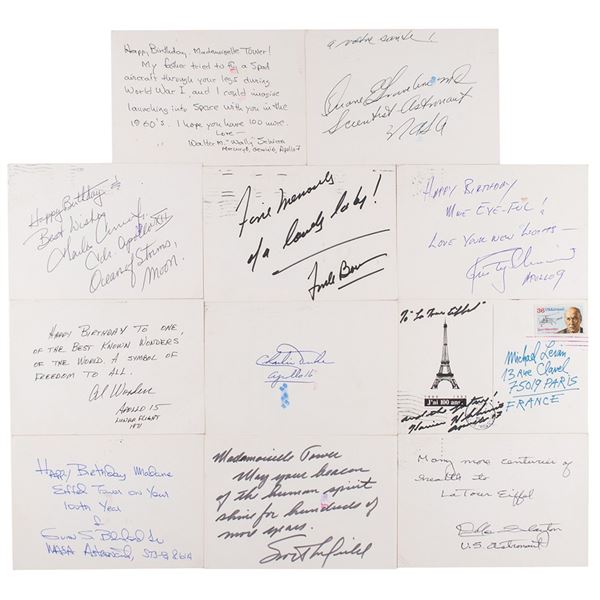 Happy Birthday, Mademoiselle Tower!
My father tried to fly a Spad
aircraft through your legs during
World War I, and I could imagine
launching into space with you in the
1960's. I hope you have 100 more.
Love—
Walter M. "Wally" Schirra
Mercury 8, Gemini 6, Apollo 7
a votre sante!
Duane Graveline MD
Scientist Astronaut
NASA
Happy Birthday &
Best Wishes
Charles Conrad Jr.
Cdr. Apollo XII
Ocean of Storms,
Moon.
Fine memories
of a lovely lady!
Frank Borman
HAPPY BIRTHDAY
MRS EYE-FUL!
LOVE YOUR NEW LIGHTS—
Rusty Schweickart
APOLLO 9
HAPPY BIRTHDAY TO ONE,
OF THE BEST KNOWN WONDERS
OF THE WORLD. A SYMBOL OF
FREEDOM TO ALL.
Al Worden
APOLLO 15
LUNAR FLIGHT
1971
Charlie Duke
Apollo 16
To "La Tour Eiffel"
J'ai 100 ans
and the
Apollo
36 USAirmail
Michael Levin
13 Ave Clavel
75019 PARIS
FRANCE
Happy Birthday Madame
Eiffel Tower on Your
100th Year
Guion S Bluford Jr
NASA Astronaut, STS-8 & 61A
Mademoiselle Tower
May your beacon
of the human spirit
shine for hundreds of
more years.
Many more centuries of
health to
La Tour Eiffel
Deke Slayton
U.S. Astronaut